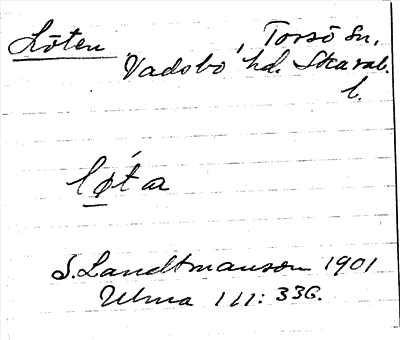 Löten, Torsö sn,
Vadsbo hd. Skarab.
l.
lǿta
S. Landtmanson 1901
Ulma 111: 336.